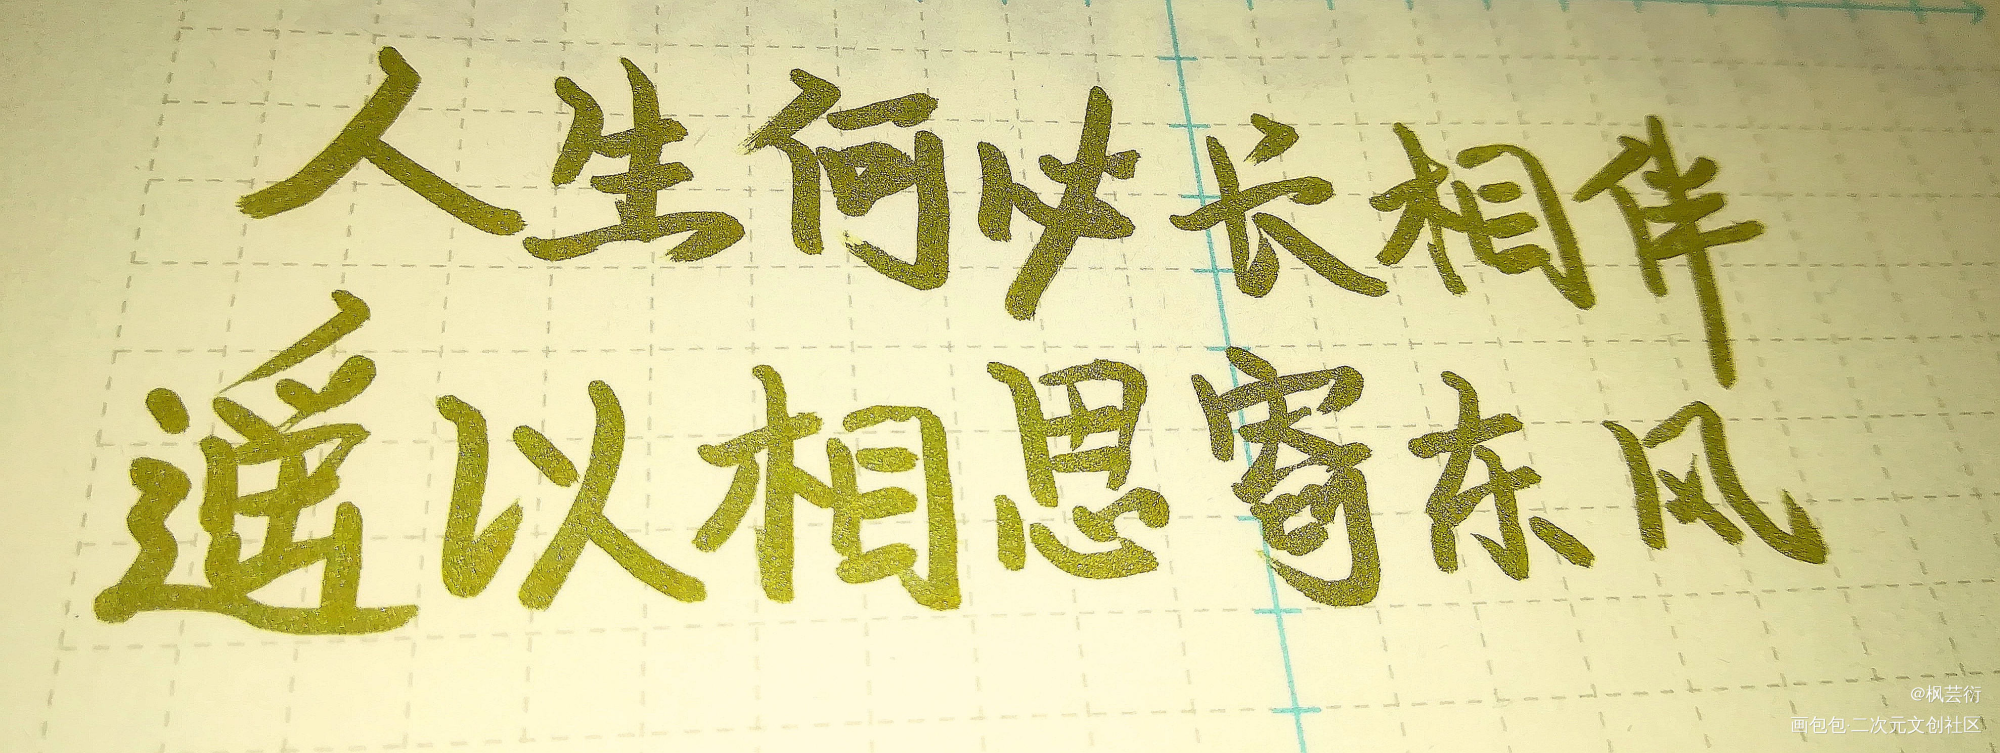 人生何必长相伴
遥以相思寄东风
@枫芸衍
画包包·二次元文创社区